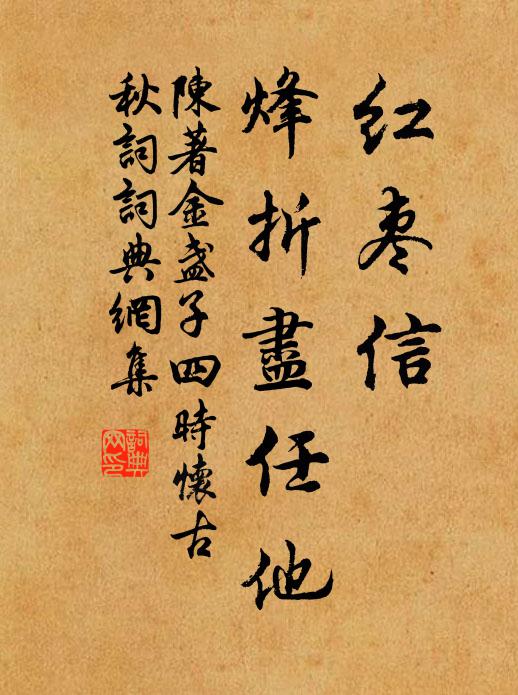 红枣信
烽折盡任他
陳著金盏子四時懷古
秋詞詞典網集
詞典
网印